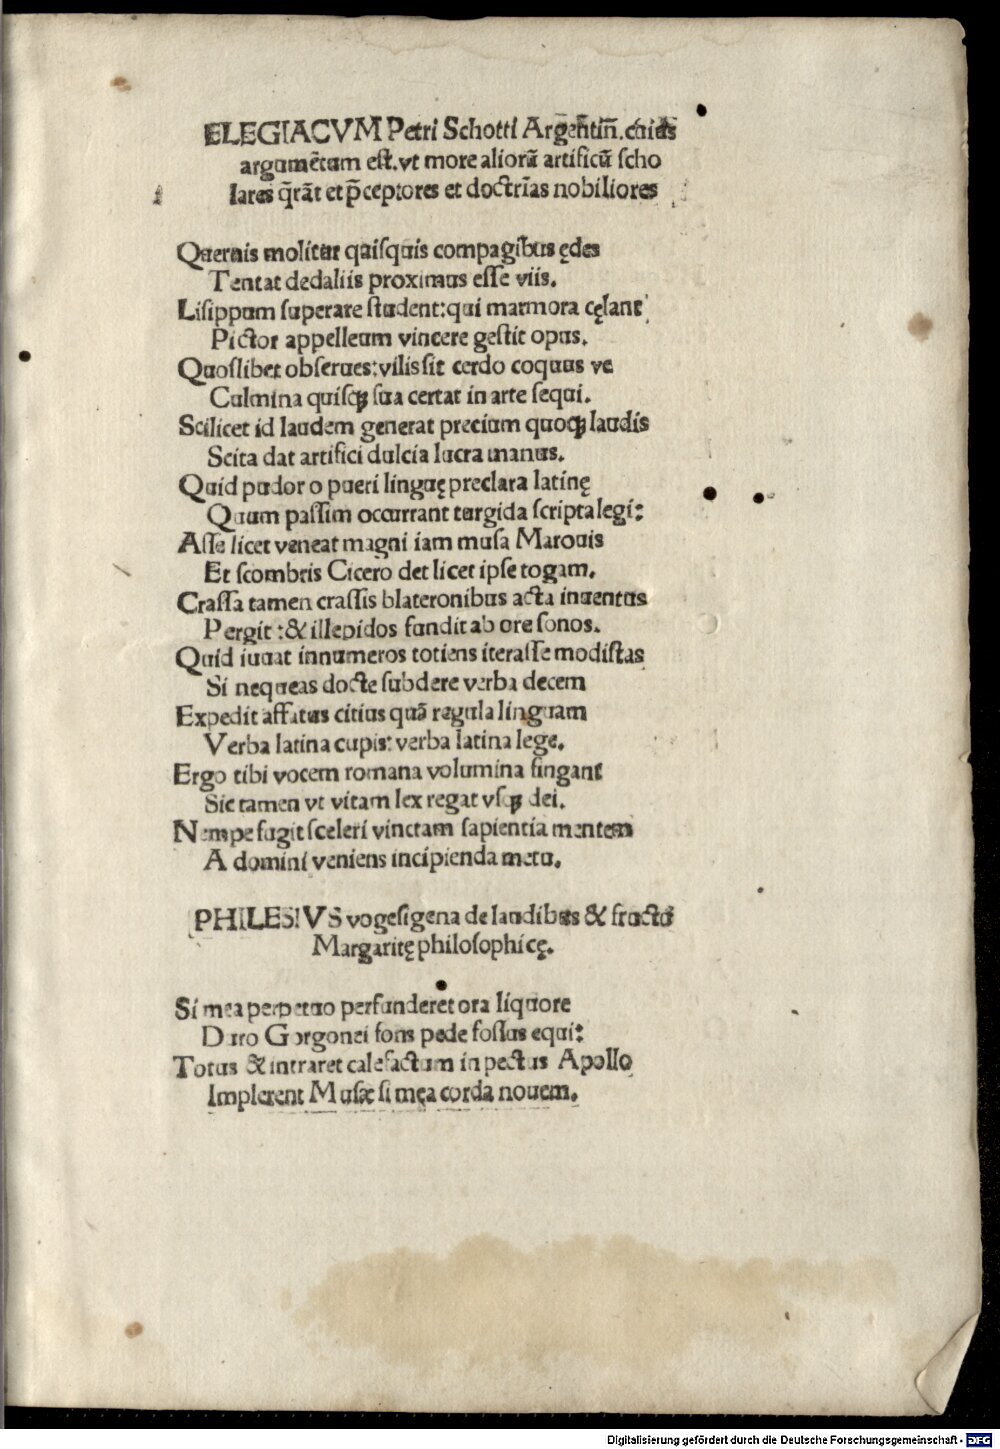 ELEGIACVM Petri Schotti Argeñtiñ. cuius
argumētum est. vt more aliorū artificū ſcho
lares q̄rāt et p̄ceptores et doctrīas nobiliores
Quernis molitur quiſquis compagibus ędes
Tentat dedaliis proximus eſſe viis.
Liſippum ſuperare ſtudent: qui marmora cęlant
Pictor appelleum vincere geſtit opus.
Quoſlibet obſerues: vilis ſit cerdo coquus ve
Culmina quiſqꝫ ſua certat in arte ſequi.
Scilicet id laudem generat precium quoqꝫ laudis
Scita dat artifici dulcia lucra manus.
Quid pudor o pueri linguę preclara latinę
Quum paſſim occurrant turgida ſcripta legi:
Aſſe licet veneat magni iam muſa Maronis
Et ſcombris Cicero det licet ipſe togam.
Craſſa tamen craſſis blateronibus acta iuuentus
Pergit: & illepidos fundit ab ore ſonos.
Quid iuuat innumeros totiens iteraſſe modiſtas
Si nequeas docte ſubdere verba decem
Expedit affatus citius quā regula linguam
Verba latina cupis: verba latina lege.
Ergo tibi vocem romana volumina fingant
Sic tamen vt vitam lex regat vſqꝫ dei.
Nempe fugit ſceleri vinctam ſapientia mentem
A domini veniens incipienda metu.
PHILESIVS vogeſigena de laudibus & fructu
Margaritę philoſophicę.
Si mea perpetuo perfunderet ora liquore
Duro Gorgonei fons pede foſſus equi:
Totus & intraret calefactum in pectus Apollo
Implerent Muſæ ſi męa corda nouem.
Digitalisierung gefördert durch die Deutsche Forschungsgemeinschaft - DFG